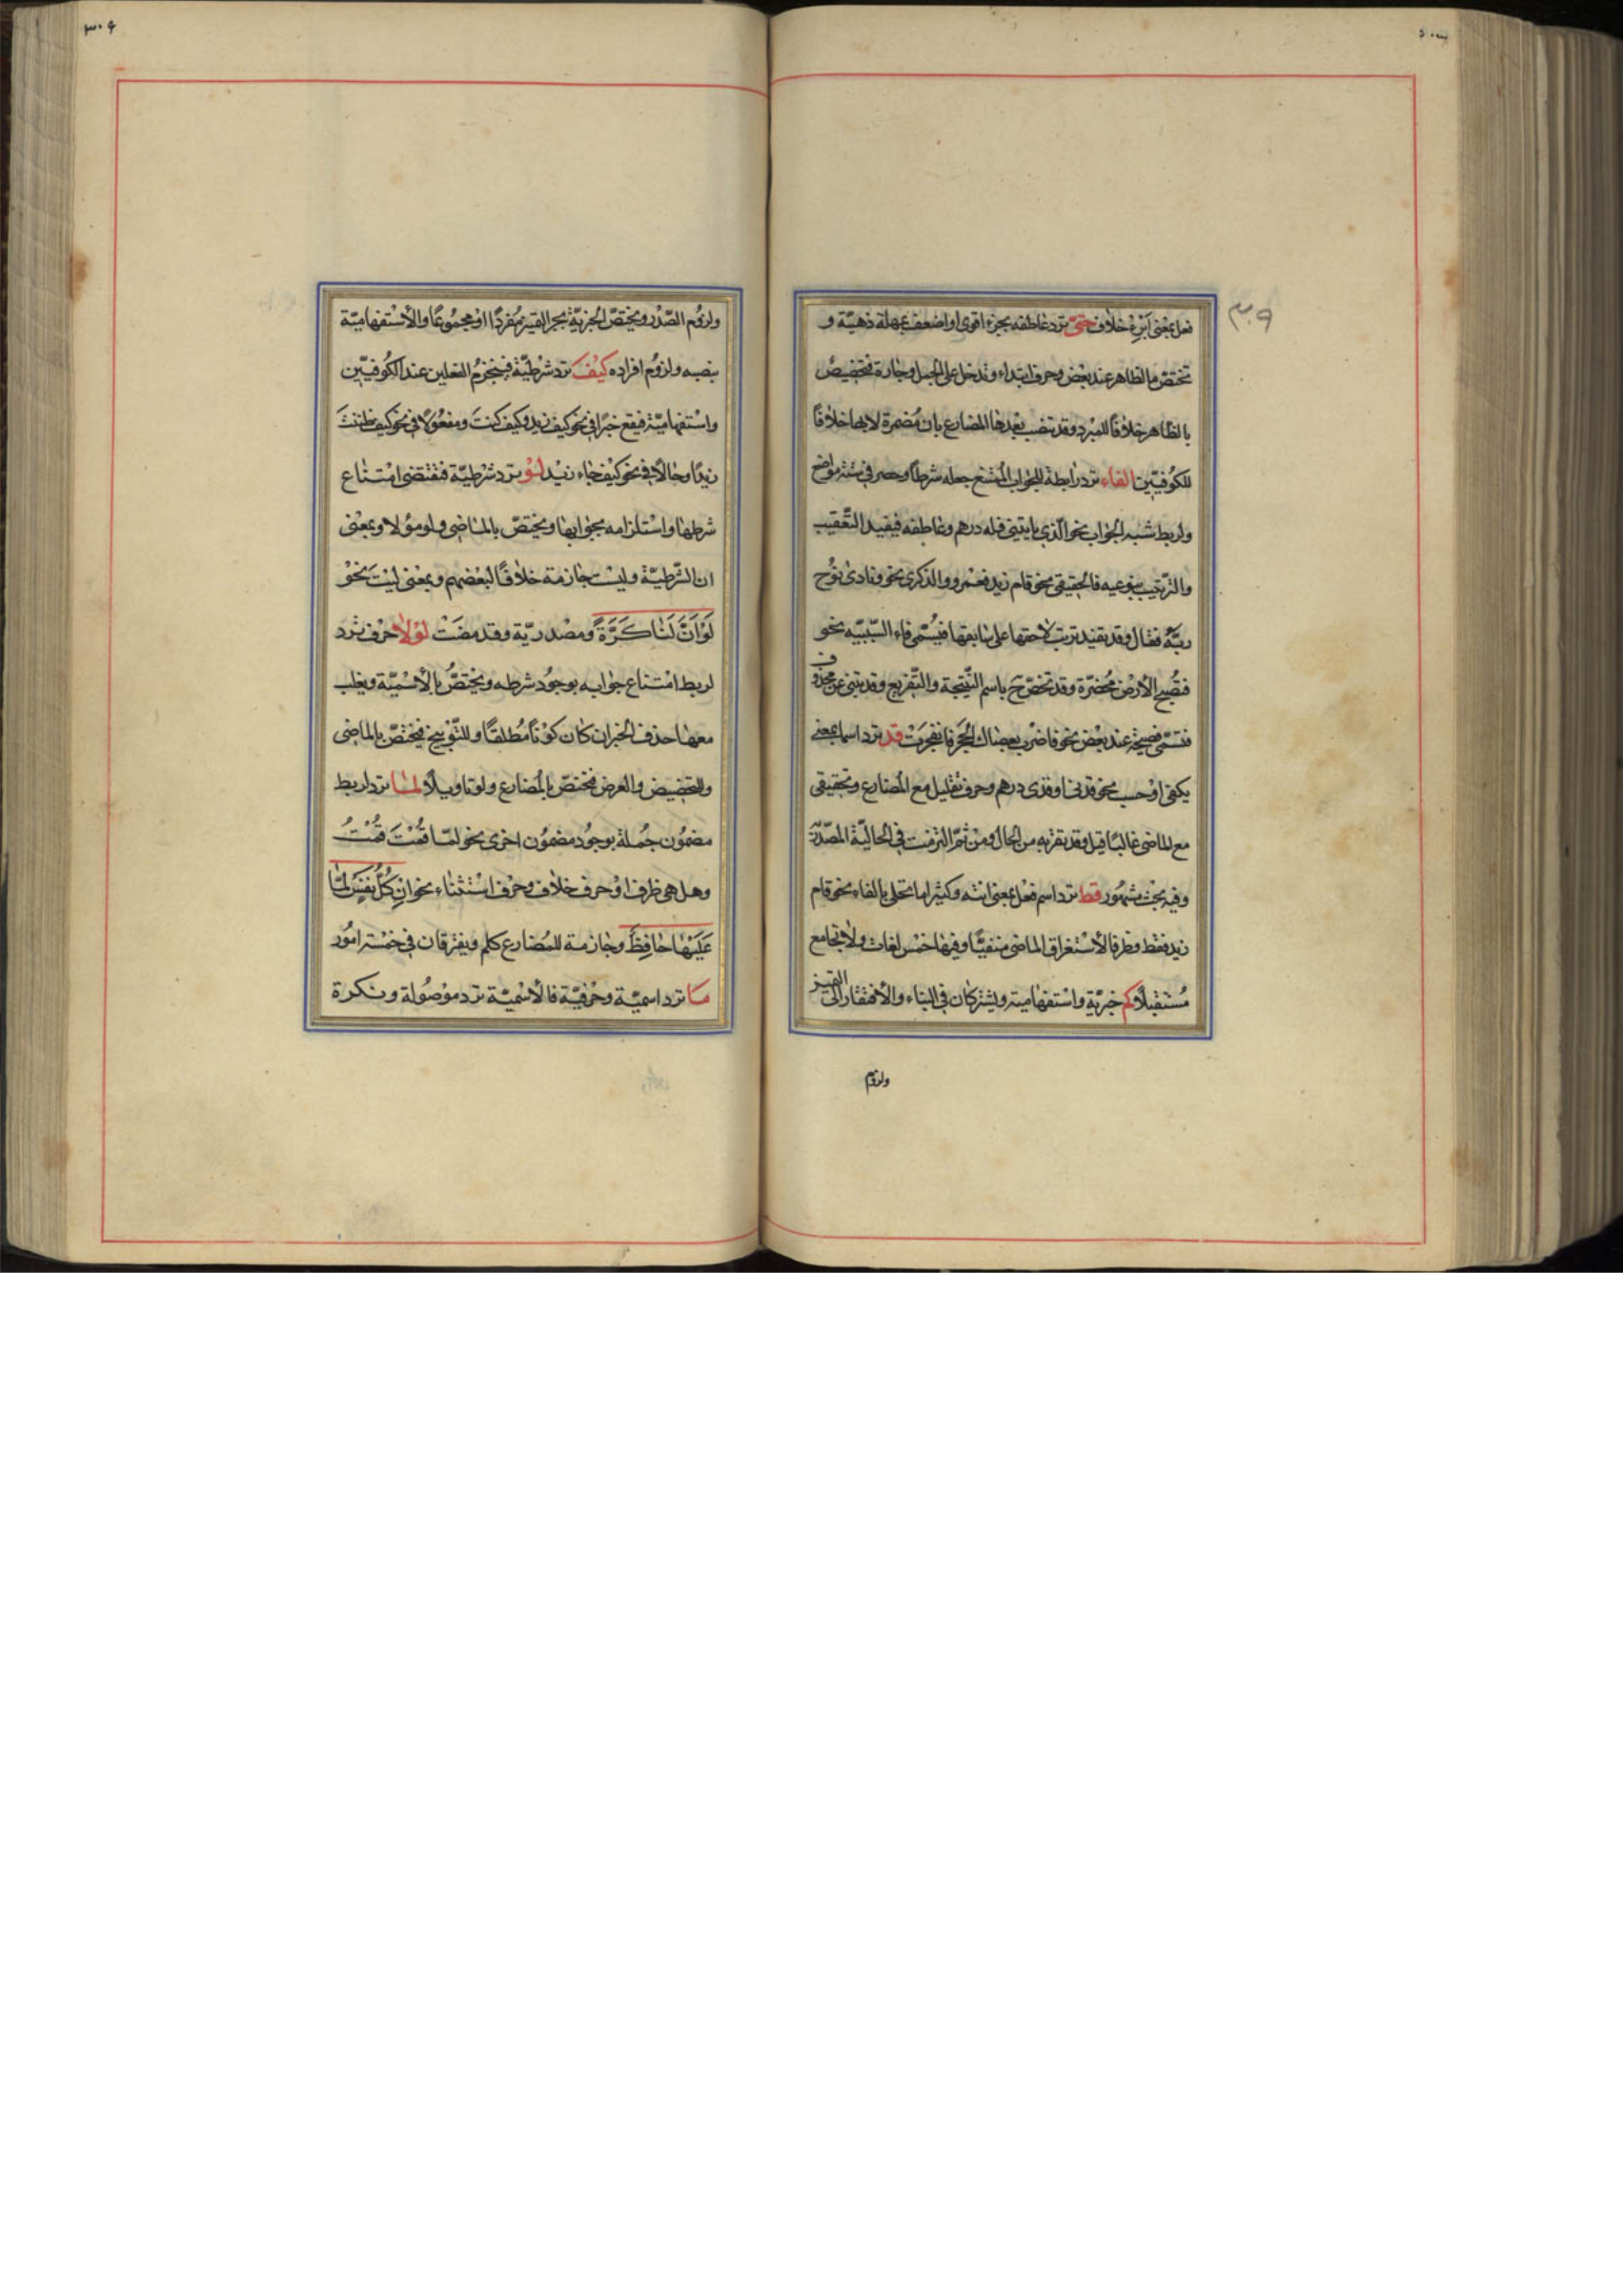 فعل بمعنی ابرء خلاف حتّی ترد عاطفه بجزء اقوی او اضعف بمهلة ذهنیّة و
تختصّ بالظاهر عند بعض وحرف ابتداء وتدخل علی الجمل وجارة فتختص
بالظاهر خلافاً للمبرد وقد تنصب بعدها المضارع بان مضمرة لا بها خلافاً
للکوفیّین الفاء ترد رابطة للجواب الممتنع جعله شرطاً وحصر فی ستّة مواضع
ولربط شبه الجواب نحو الّذی یاتینی فله درهم وعاطفه فیفید التّعقیب
والتّرتیب بنوعیه فالحقیقی نحو قام زید فعمرو والذکری نحو ونادی نوح
ربّه فقال وقد یفید ترتب لاحقها علی سابقها فیسمّی فاء السّببیّه نحو
فتصبح الارض مخضرّة وقد تختصّ ح باسم النّتیجة والتّفریع وقد تنبئ عن محذوف
فتسمّی فصیحة عند بعض نحو فاضرب بعصاك الحجر فانفجرت قد ترد اسما بمعنی
یکفی او حسب نحو قدنی وقدی درهم وحرف تقلیل مع المضارع وتحقیقی
مع الماضی غالباً قیل وقد تقرّبه من الحال ومن ثمّ التزمت فی الحالیّة المصدّرة
وفیه بحث مشهور قط ترد اسم فعل بمعنی انته وکثیرا ما تحلی بالفاء نحو قام
زید فقط وظرفا لاستغراق الماضی منفیّا وفیها خمس لغات ولا تجامع
مستقبلاً کم خبریّة واستفهامیه ویشترکان فی البناء والافتقار الی التمییز
ولزوم
ولزوم الصّدر ویختصّ الخبریّة بجر التمییز مفرداً او مجموعاً والاستفهامیّة
بنصبه ولزوم افراده کیف ترد شرطیّة فتجزم الفعلین عند الکوفیّین
واستفهامیّة فیقع خبرا فی نحو کیف زید وکیف کنت ومفعولا فی نحو کیف ظننت
زیدا وحالا فی نحو کیف جاء زید لو ترد شرطیّة فتقتضی امتناع
شرطها واستلزامه بجوابها ویختصّ بالماضی ولو مؤلا وبمعنی
ان الشّرطیّة ولیست جازمة خلافاً لبعضهم وبمعنی لیت نحو
لو انّ لنا کرّة ومصدریّة وقد مضت لولا حرف ترد
لربط امتناع جوابه بوجود شرطه ویختصّ بالاسمیّة ویغلب
معها حذف الخبر ان کان کوناً مطلقاً وللتّوبیخ فیختصّ بالماضی
وللتحضیض والعرض فیختصّ بالمضارع ولو تاویلاً لمّا ترد لربط
مضمون جملة بوجود مضمون اخری نحو لمّا قمت قمت
وهل هی ظرف او حرف خلاف وحرف استثناء نحو ان کلّ نفس لمّا
علیها حافظ وجازمة للمضارع کلم ویفترقان فی خمسة امور
ما ترد اسمیّة وحرفیّة فالاسمیّة ترد موصولة ونکرة